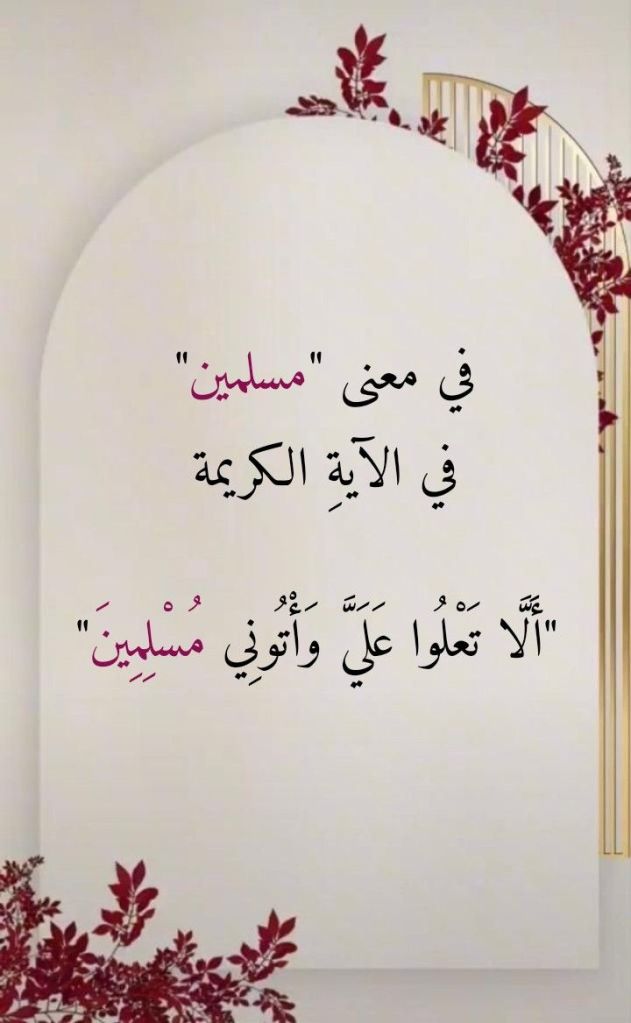 في معنى "مسلمين"
في الآيةِ الكريمة
"أَلَّا تَعْلُوا عَلَيَّ وَأْتُونِي مُسْلِمِينَ"